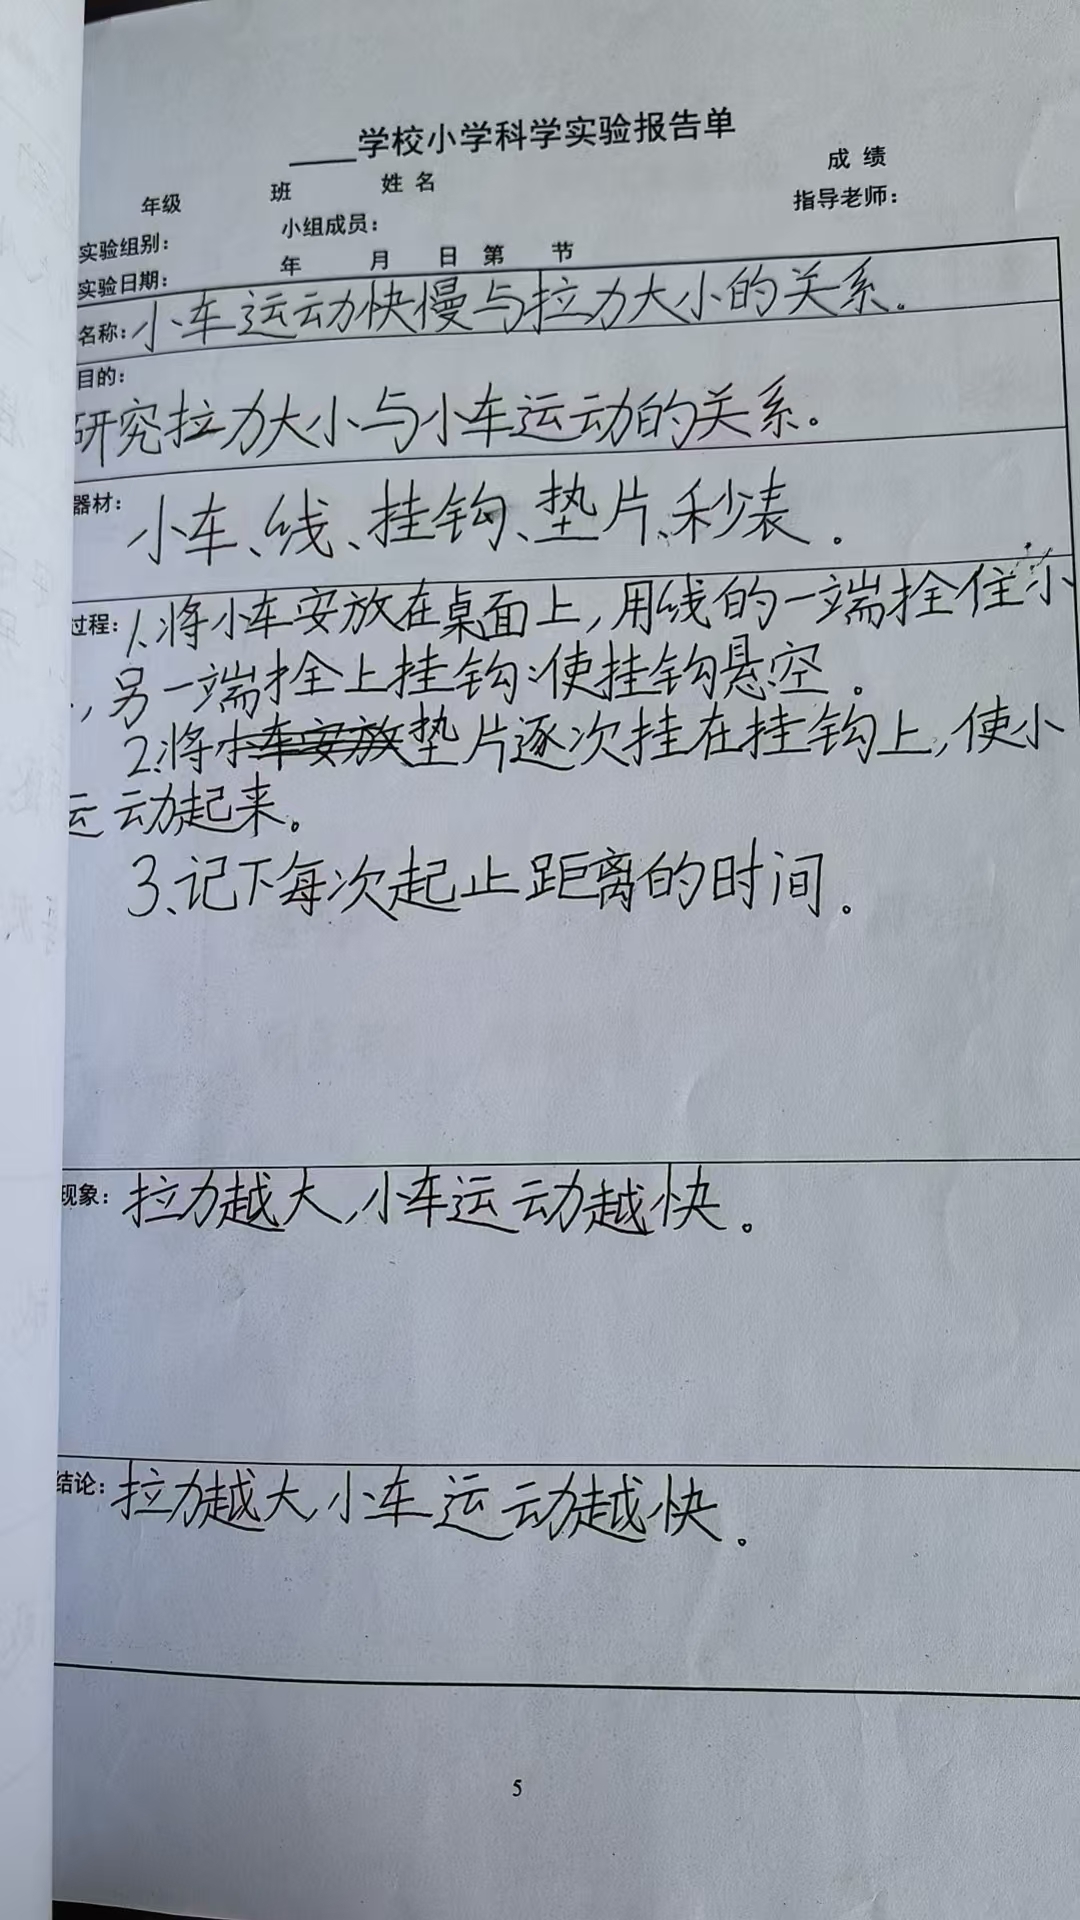 ____学校小学科学实验报告单
成 绩
年级 班 姓 名
指导老师：
实验组别： 小组成员：
实验日期： 年 月 日 第 节
名称：小车运动快慢与拉力大小的关系。
目的：
研究拉力大小与小车运动的关系。
器材：小车、线、挂钩、垫片、秒表。
过程：1.将小车安放在桌面上，用线的一端拴住小
，另一端拴上挂钩：使挂钩悬空。
2.将小车安放垫片逐次挂在挂钩上，使小
运动起来。
3、记下每次起止距离的时间。
现象：拉力越大，小车运动越快。
结论：拉力越大，小车运动越快。
5